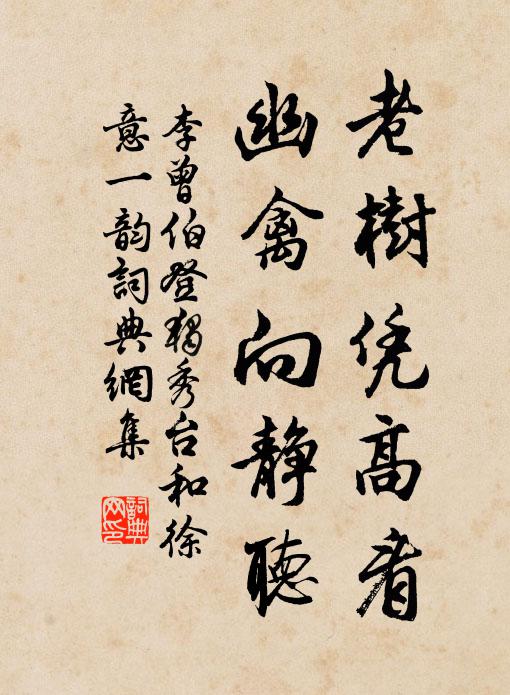 老樹凭高看
幽禽向静聽
李曾伯登獨秀台和徐
意一韵詞典網集
詞典
网印